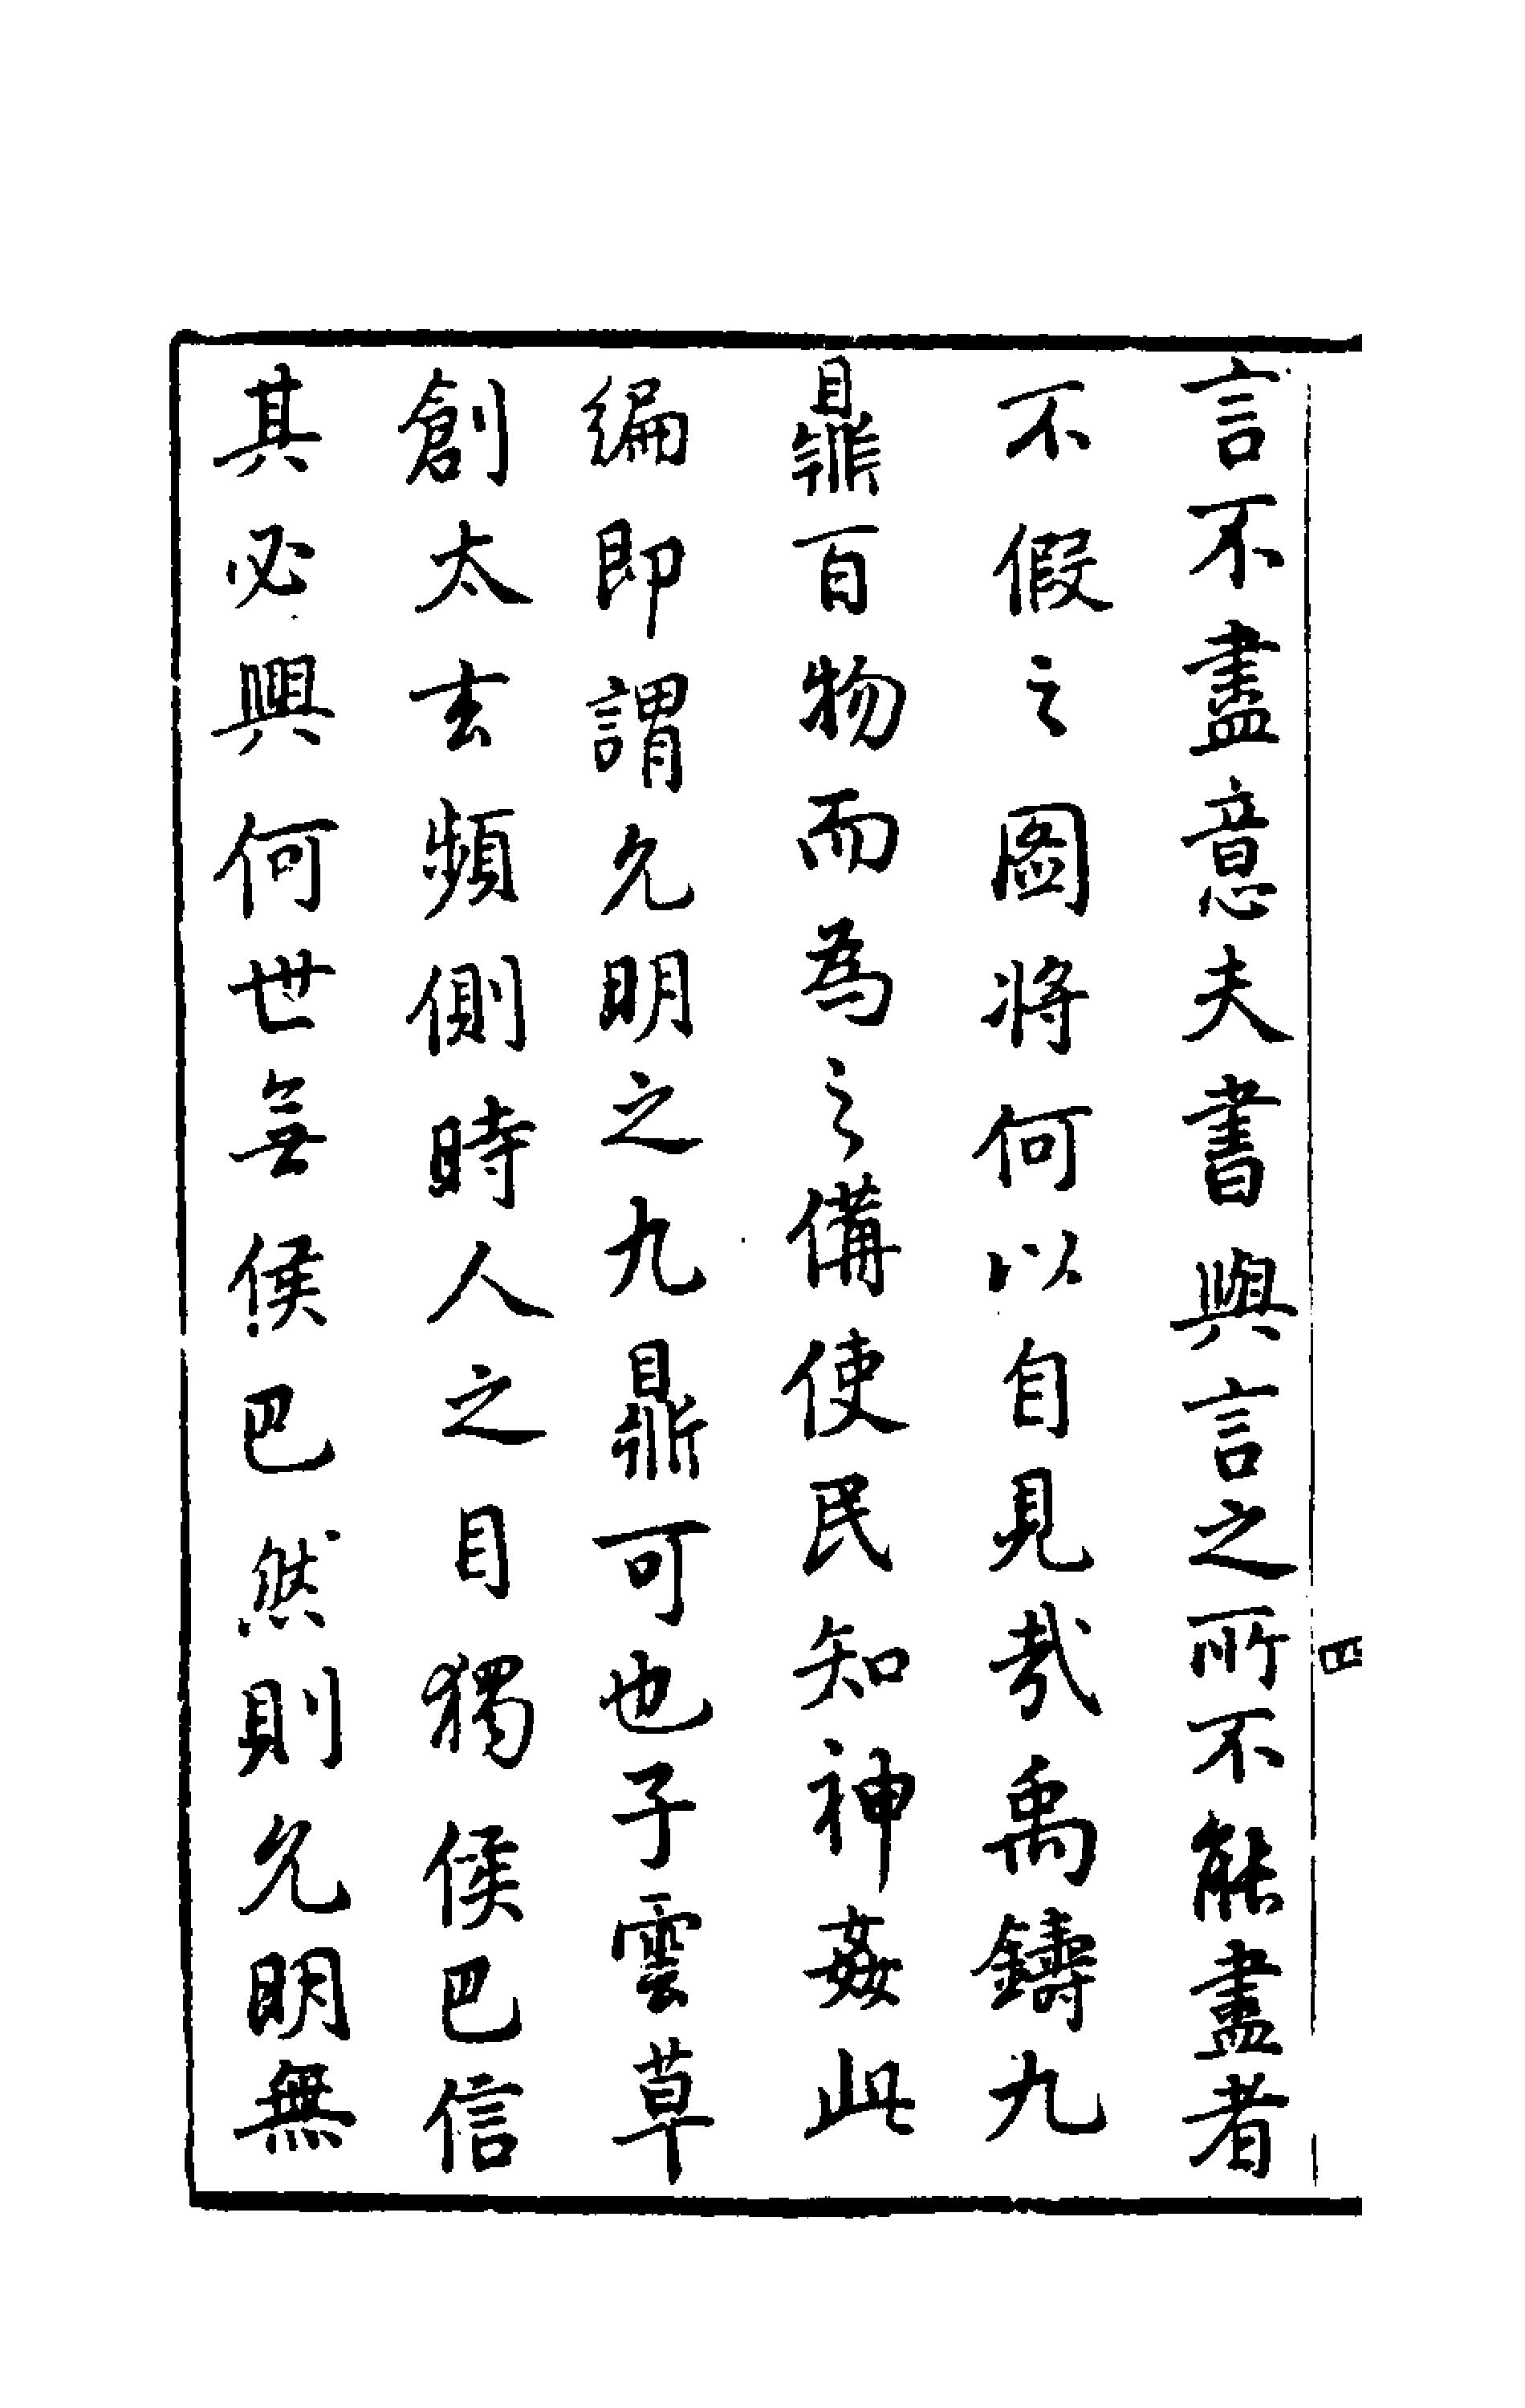 言不盡意夫書與言之所不能盡者
不假之圖將何以自見哉禹鑄九
鼎百物而為之備使民知神姦此
編即謂允明之九鼎可也子雲草
創太玄頻側時人之目獨侯巴信
其必興何世無侯巴然則允明無
四